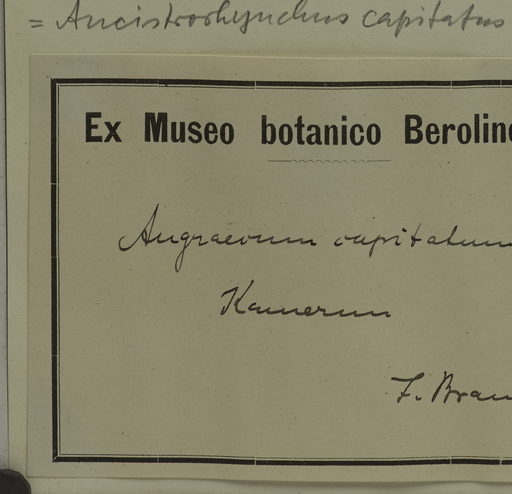 = Ancistrorhynchus capitatus
Ex Museo botanico Berolino
Angraecum capitatum
Kamerun
J. Brau